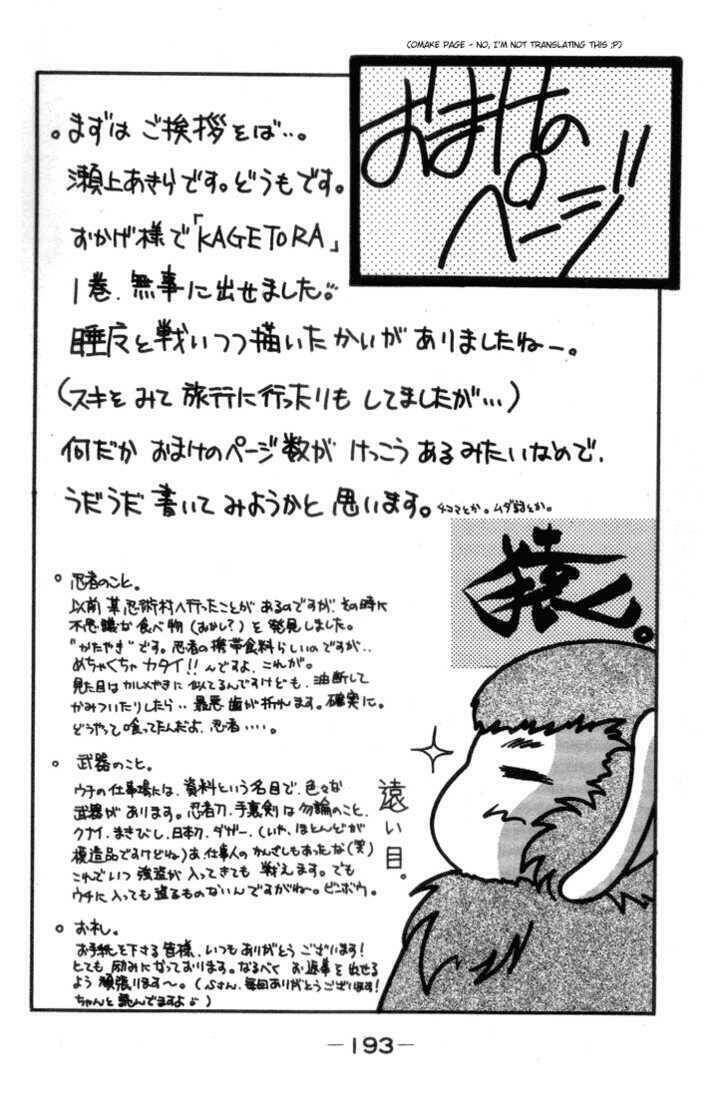 (OMAKE PAGE - NO, I'M NOT TRANSLATING THIS ;P)
おまけの
ページ!!
。まずは ご挨拶をば…。
瀬上あきらです。どうもです。
おかげ様で「KAGETORA」
1巻、無事に出せました。
睡魔と戦いつつ描いたかいが ありましたねー。
(スキを みて 旅行に行ったりも してましたが…)
何だか おまけのページ数が けっこう あるみたいなので、
うだうだ 書いて みようかと 思います。4コマとか。ムダ話とか。
猿。
遠い目。
○ 忍者のこと。
以前 某忍術村へ行ったことが あるのですが、その時に
不思議な食べ物(おかし?)を発見しました。
"かたやき"です。忍者の携帯食料らしいのですが‥
めちゃくちゃ カタイ!!んですよ、これが。
見た目は カルメやきに 似てるんですけども、油断して
かみついたりしたら‥ 最悪 歯が折れます。確実に。
どうやって 喰ってたんだよ、忍者‥‥。
○ 武器のこと。
ウチの仕事場には、資料という名目で、色々な
武器が あります。忍者刀、手裏剣は 勿論のこと、
クナイ、まきびし、日本刀、ダガー、(いや、ほとんどが
模造品ですけどね)あ、仕事人の かんざしもあったな(笑)
これで いつ 強盗が 入ってきても 戦えます。でも
ウチに 入っても 盗るものないんですがね〜。ビンボウ。
○ お礼。
お手紙を下さる 皆様、いつも ありがとう ございます!
とても 励みに なっております。なるべく お返事を 出せる
よう 頑張ります〜。(さん、毎回ありがとうございます!
ちゃんと 読んでますよ)
—193—